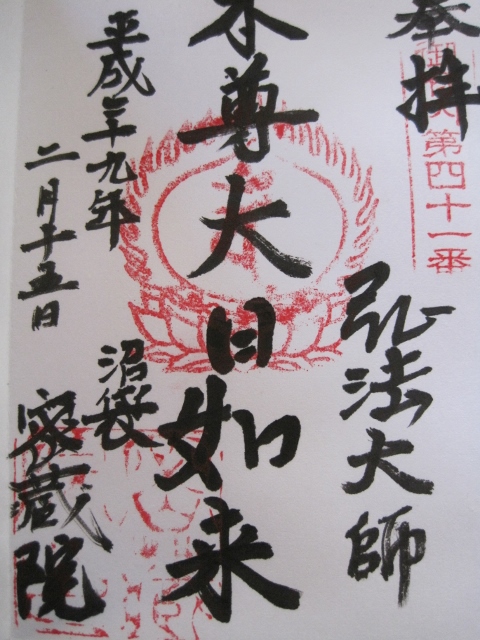 奉拝
御府内第四十一番
弘法大師
本尊大日如来
平成二十九年
二月十五日
沼袋
密蔵院